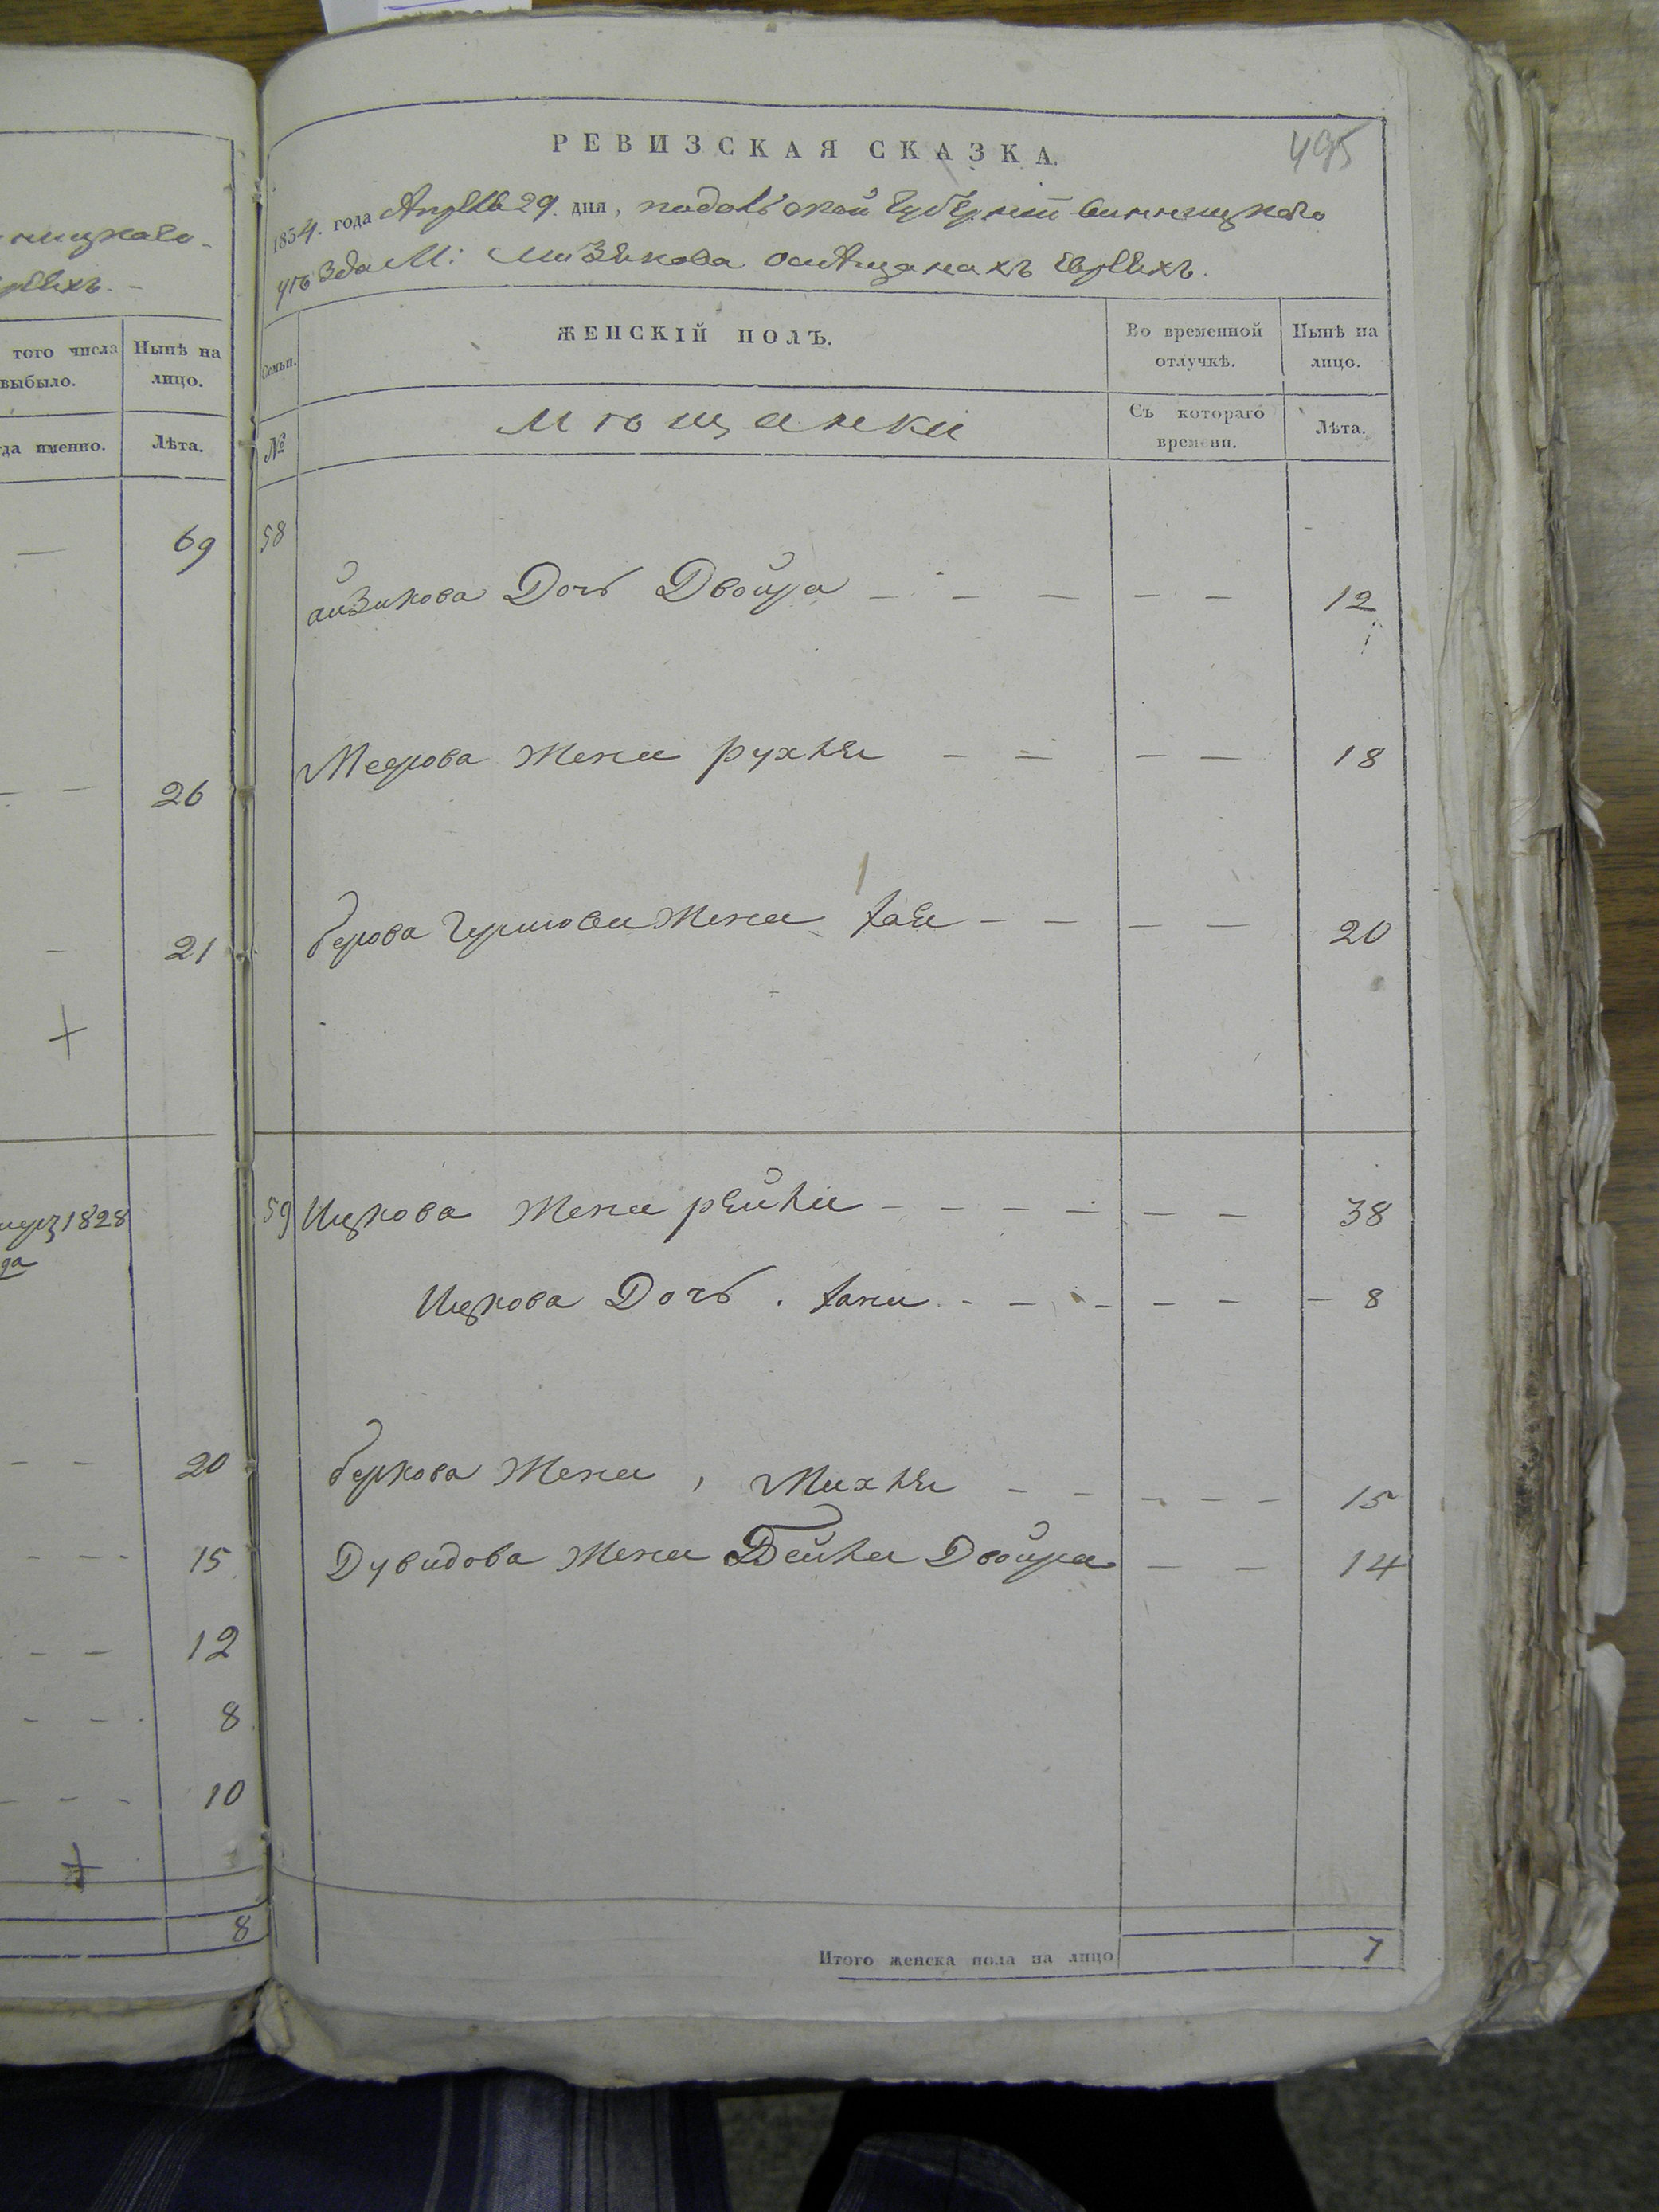 ницкаго
рѣехъ.
того числа Нынѣ на
выбыло. лицо.
да именно. Лѣта.
69
26
21
1828
да
20
15
12
8
10
8
495
РЕВИЗСКАЯ СКАЗКА.
1854. года Апрѣля 29. дня, подольской Губерніи Винницкого
уѣзда М: Мизякова о мѣщанахъ Евреѣхъ.
Семьи. ЖЕНСКІЙ ПОЛЪ. Во временной Нынѣ на
отлучкѣ. лицо.
№ мѣщанки Съ котораго Лѣта.
времени.
58
айзикова Дочь Двойра — — — — — 12
Меерова Жена рухля — — — — 18
берова Гершова Жена хая — — — — 20
59 Ицкова Жена рейзя — — — — — — 38
Ицкова Дочь . хана. — — — — — — 8
беркова Жена , Михля — — — — — 15
Дувидова Жена Бейла Двойра — — 14
Итого женска пола на лицо 7